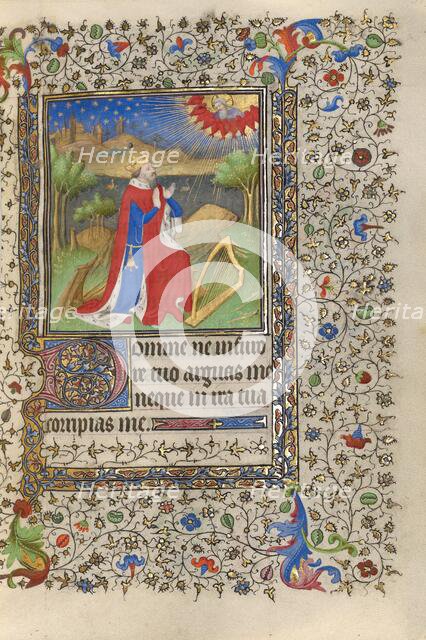 Heritage Heritage
Heritage Heritage
Domine ne in furo
re tuo arguas me
neque in ira tua
corripias me.
Heritage Heritage